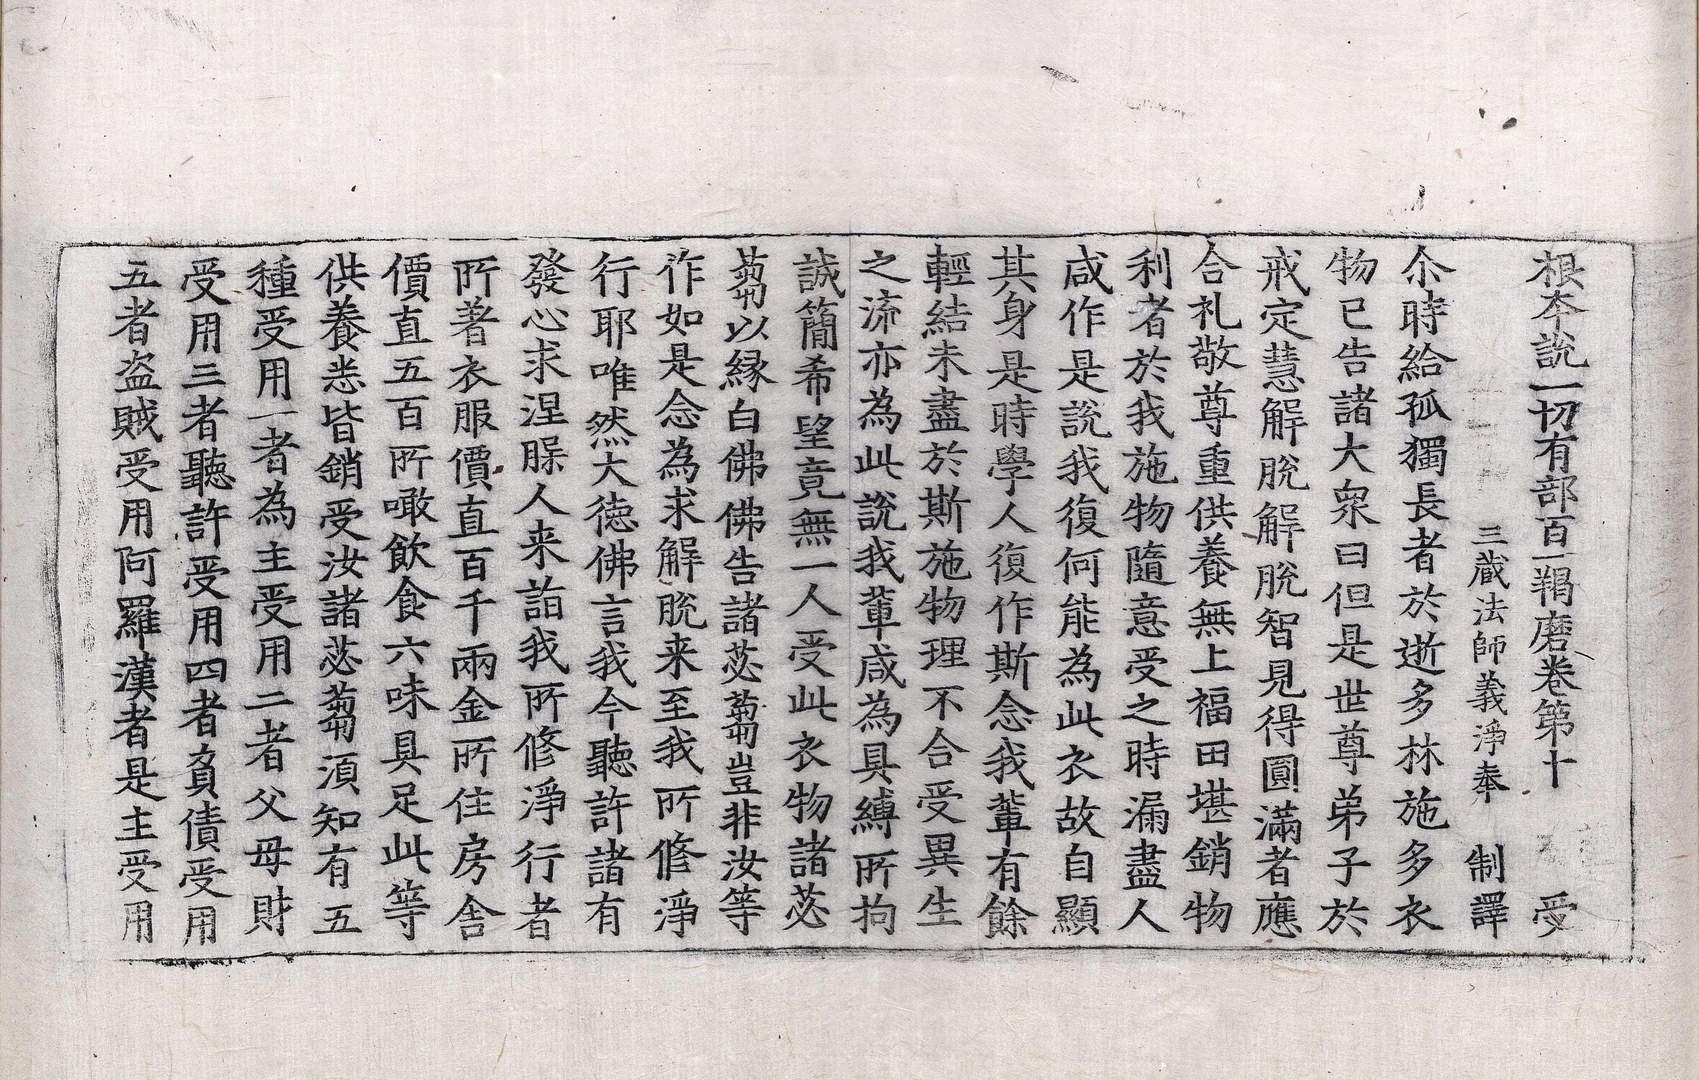 根本說一切有部百一羯磨卷第十 受
三蔵法師義淨奉 制譯
尒時給孤獨長者於逝多林施多衣
物已告諸大衆曰但是世尊弟子於
戒定慧解脫解脫智見得圓滿者應
合礼敬尊重供養無上福田堪銷物
利者於我施物隨意受之時漏盡人
咸作是說我復何能為此衣故自顯
其身是時學人復作斯念我輩有餘
輕結未盡於斯施物理不合受異生
之流亦為此說我輩咸為具縛所拘
誠簡希望竟無一人受此衣物諸苾
蒭以緣白佛佛告諸苾蒭豈非汝等
作如是念為求解脫来至我所修淨
行耶唯然大德佛言我今聽許諸有
發心求涅槃人来詣我所修淨行者
所著衣服價直百千兩金所住房舍
價直五百所噉飲食六味具足此等
供養悉皆銷受汝諸苾蒭須知有五
種受用一者為主受用二者父母財
受用三者聽許受用四者負債受用
五者盜賊受用阿羅漢者是主受用